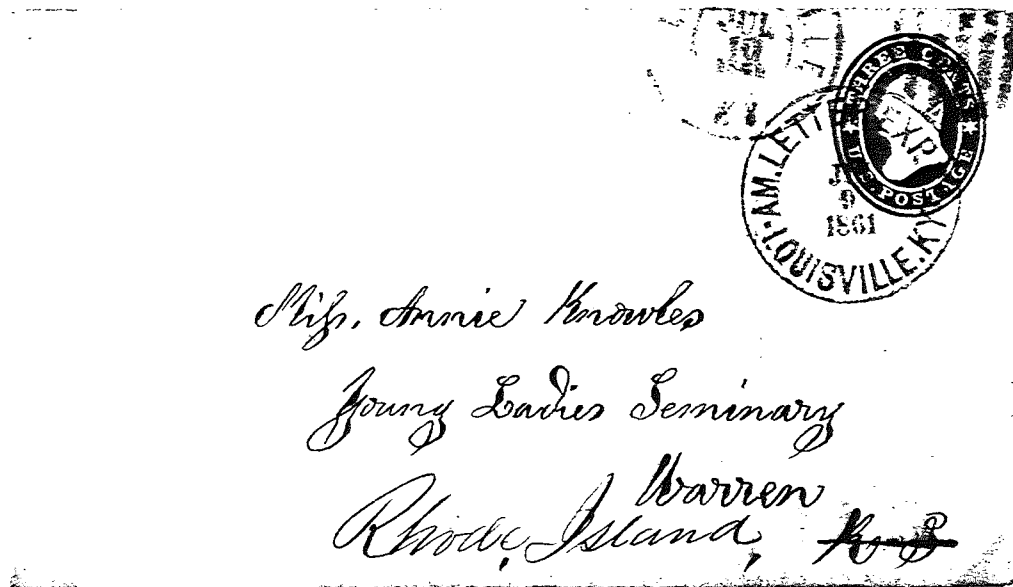 THREE CENTS
U.S. POSTAGE
AM. LETTE EXP.
9
1861
LOUISVILLE. KY
Miss. Annie Knowles
Young Ladies Seminary
Warren
Rhode, Island,